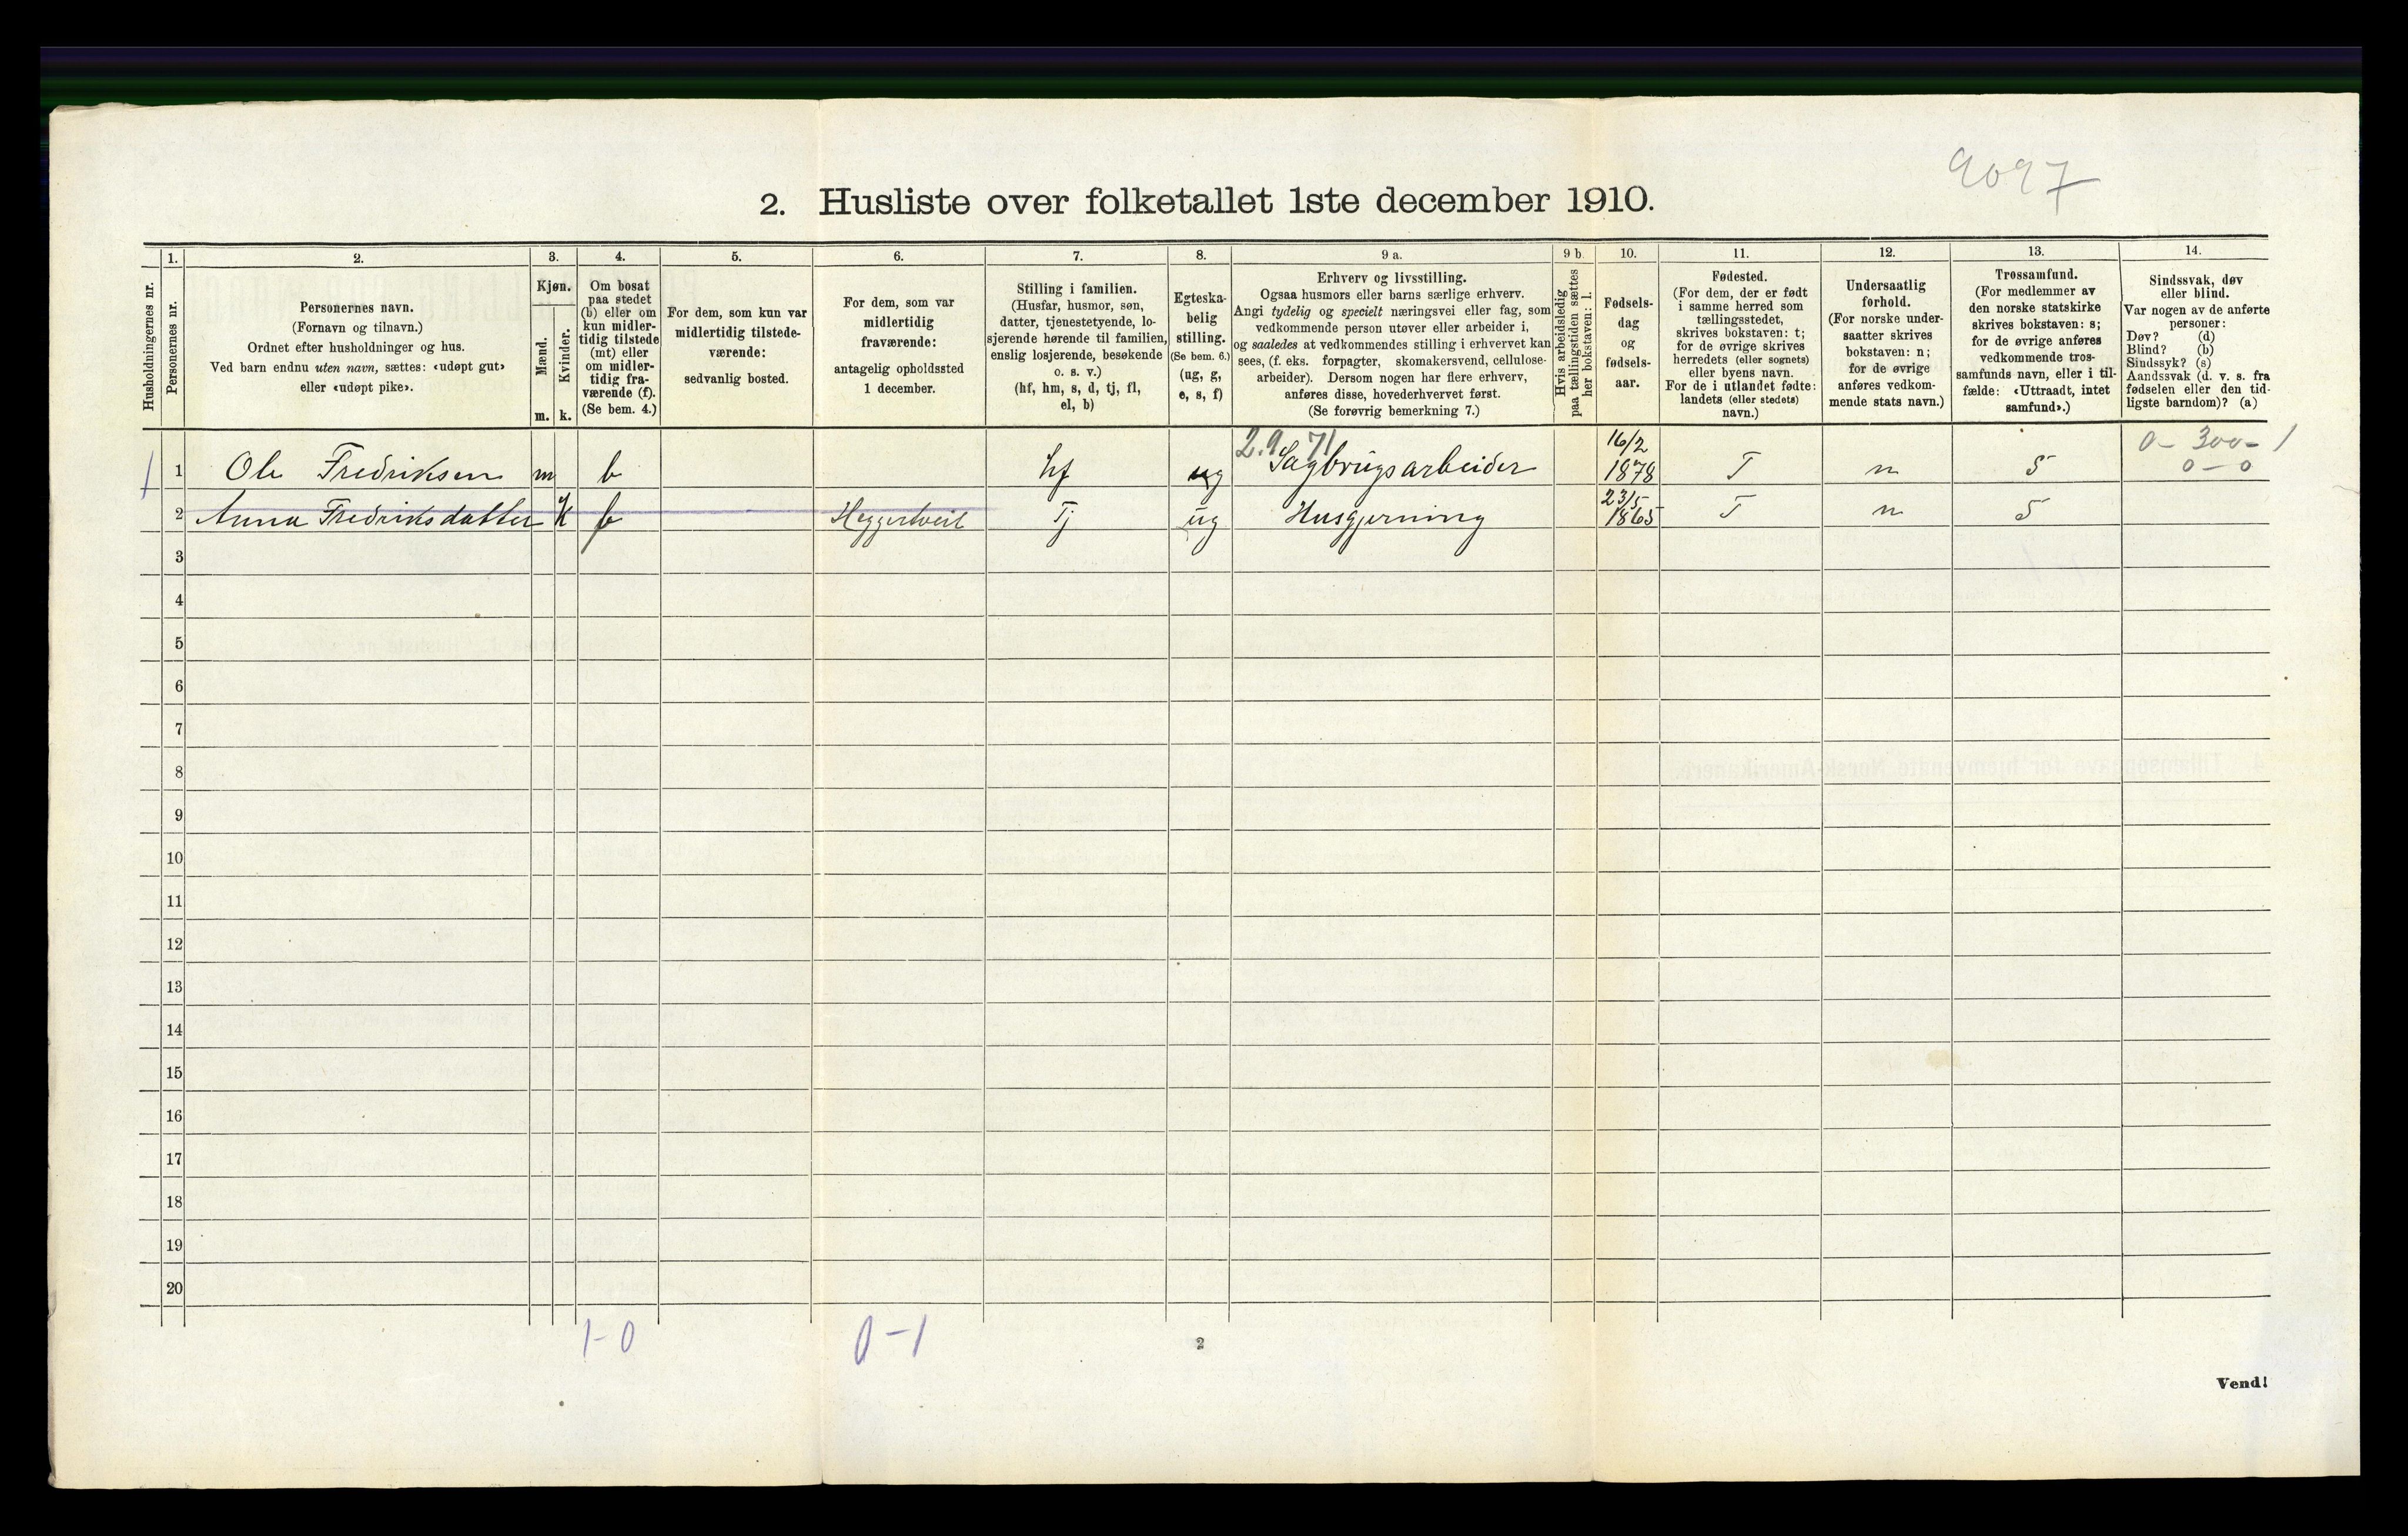 9097
2. Husliste over folketallet 1ste december 1910.
1. 2. 3. 4. 5. 6. 7. 8. 9 a. 9 b. 10. 11. 12. 13. 14.
Husholdningernes nr.
Personernes nr.
Personernes navn.
(Fornavn og tilnavn.)
Ordnet efter husholdninger og hus.
Ved barn endnu uten navn, sættes: «udøpt gut»
eller «udøpt pike».
Kjøn.
Mænd.
Kvinder.
m. k.
Om bosat
paa stedet
(b) eller om
kun midler-
tidig tilstede
(mt) eller
om midler-
tidig fra-
værende (f).
(Se bem. 4.)
For dem, som kun var
midlertidig tilstede-
værende:
sedvanlig bosted.
For dem, som var
midlertidig
fraværende:
antagelig opholdssted
1 december.
Stilling i familien.
(Husfar, husmor, søn,
datter, tjenestetyende, lo-
sjerende hørende til familien,
enslig losjerende, besøkende
o. s. v.)
(hf, hm, s, d, tj, fl,
el, b)
Egteska-
belig
stilling.
(Se bem. 6.)
(ug, g,
e, s, f)
Erhverv og livsstilling.
Ogsaa husmors eller barns særlige erhverv.
Angi tydelig og specielt næringsvei eller fag, som
vedkommende person utøver eller arbeider i,
og saaledes at vedkommendes stilling i erhvervet kan
sees, (f. eks. forpagter, skomakersvend, cellulose-
arbeider). Dersom nogen har flere erhverv,
anføres disse, hovederhvervet først.
(Se forøvrig bemerkning 7.)
Hvis arbeidsledig
paa tællingstiden sættes
her bokstaven: l.
Fødsels-
dag
og
fødsels-
aar.
Fødested.
(For dem, der er født
i samme herred som
tællingsstedet,
skrives bokstaven: t;
for de øvrige skrives
herredets (eller sognets)
eller byens navn.
For de i utlandet fødte:
landets (eller stedets)
navn.)
Undersaatlig
forhold.
(For norske under-
saatter skrives
bokstaven: n;
for de øvrige
anføres vedkom-
mende stats navn.)
Trossamfund.
(For medlemmer av
den norske statskirke
skrives bokstaven: s;
for de øvrige anføres
vedkommende tros-
samfunds navn, eller i til-
fælde: «Uttraadt, intet
samfund».)
Sindssvak, døv
eller blind.
Var nogen av de anførte
personer:
Døv? (d)
Blind? (b)
Sindssyk? (s)
Aandssvak (d. v. s. fra
fødselen eller den tid-
ligste barndom)? (a)
2.9 71 16/2 0-300-1
1 1 Ole Fredriksen m b hf ug Sagbrugsarbeider 1878 T n S 0-0
23/5
2 Anna Fredriksdatter K f Tj ug Husgjerning 1865 T n S
3
4
5
6
7
8
9
10
11
12
13
14
15
16
17
18
19
20
1-0 0-1 2
Vend!